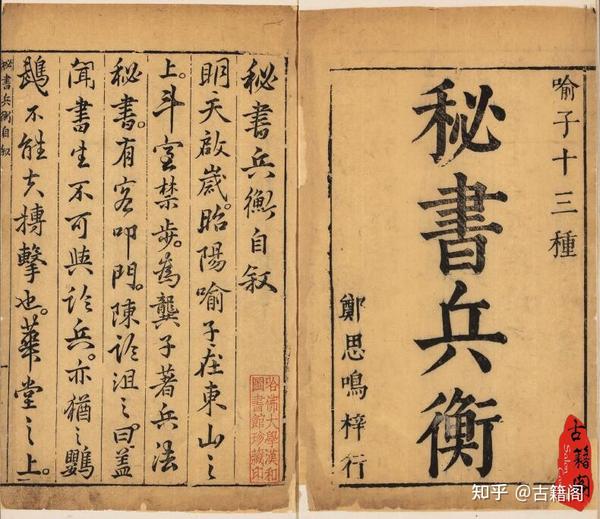 喻子十三種
秘書兵衡
鄭思鳴梓行
秘書兵衡自叙
眀天啟歲。昭陽喻子在東山之
上。斗室禁步。為龔子著兵法
秘書。有客叩門。陳論沮之。曰蓋
聞書生不可與論兵。亦猶之鸚
鵡不能搏擊也。華堂之上。
秘書兵衡自叙
哈佛大學漢和
圖書館珍藏印
古籍阁
知乎 @古籍阁